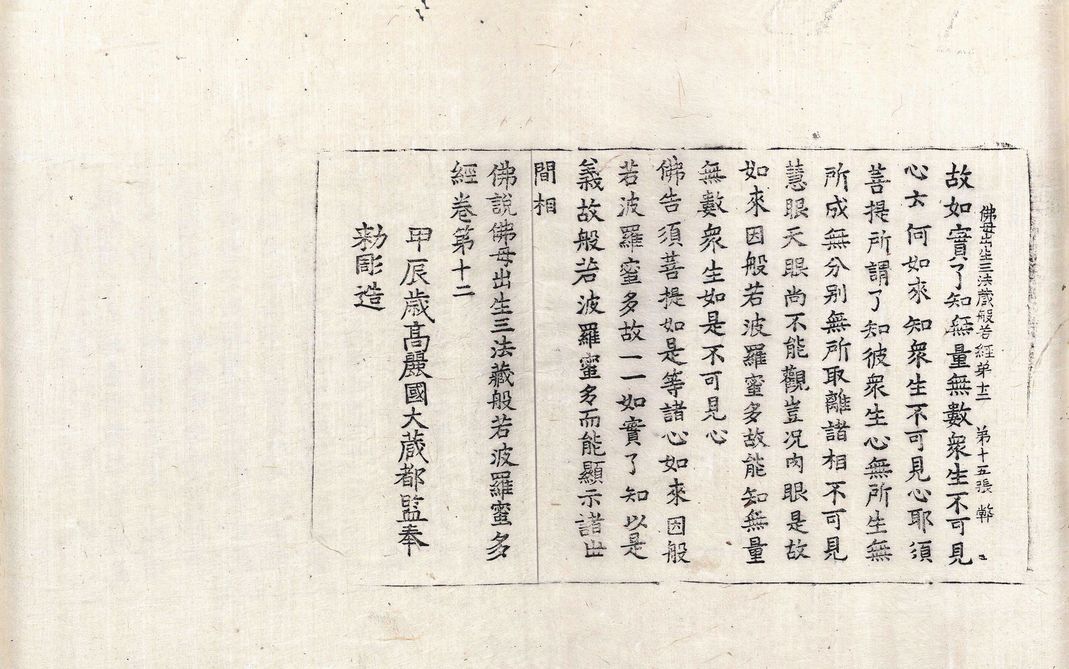 佛母出生三法蔵般若經第十二 第十五張
故如實了知無量無數衆生不可見
心云何如來知衆生不可見心耶須
菩提所謂了知彼衆生心無所生無
所成無分别無所取離諸相不可見
慧眼天眼尚不能觀豈况肉眼是故
如來因般若波羅蜜多故能知無量
無數衆生如是不可見心
佛告須菩提如是等諸心如來因般
若波羅蜜多故一一如實了知以是
義故般若波羅蜜多而能顯示諸世
間相
佛說佛母出生三法藏般若波羅蜜多
經卷第十二
甲辰歲高麗國大蔵都監奉
勑彫造